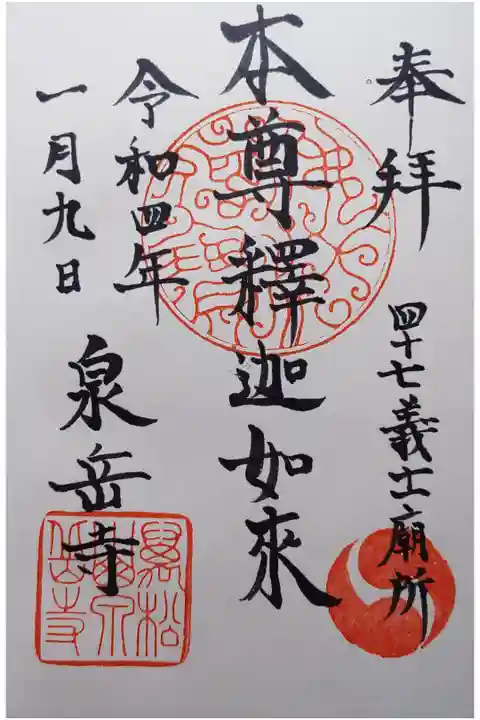 奉拝
四十七義士廟所
本尊釋迦如來
令和四年
一月九日
泉岳寺